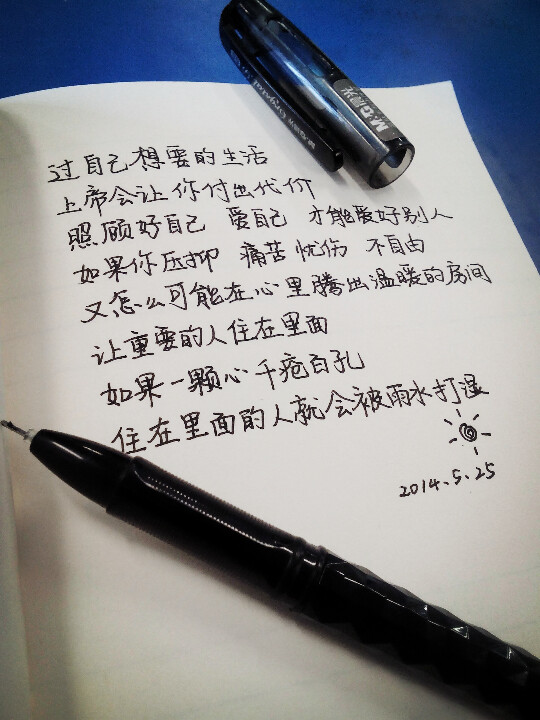 M&G晨光
过自己想要的生活
上帝会让你付出代价
照顾好自己 爱自己 才能爱好别人
如果你压抑 痛苦 忧伤 不自由
又怎么可能在心里腾出温暖的房间
让重要的人住在里面
如果一颗心千疮百孔
住在里面的人就会被雨水打湿
2014.5.25